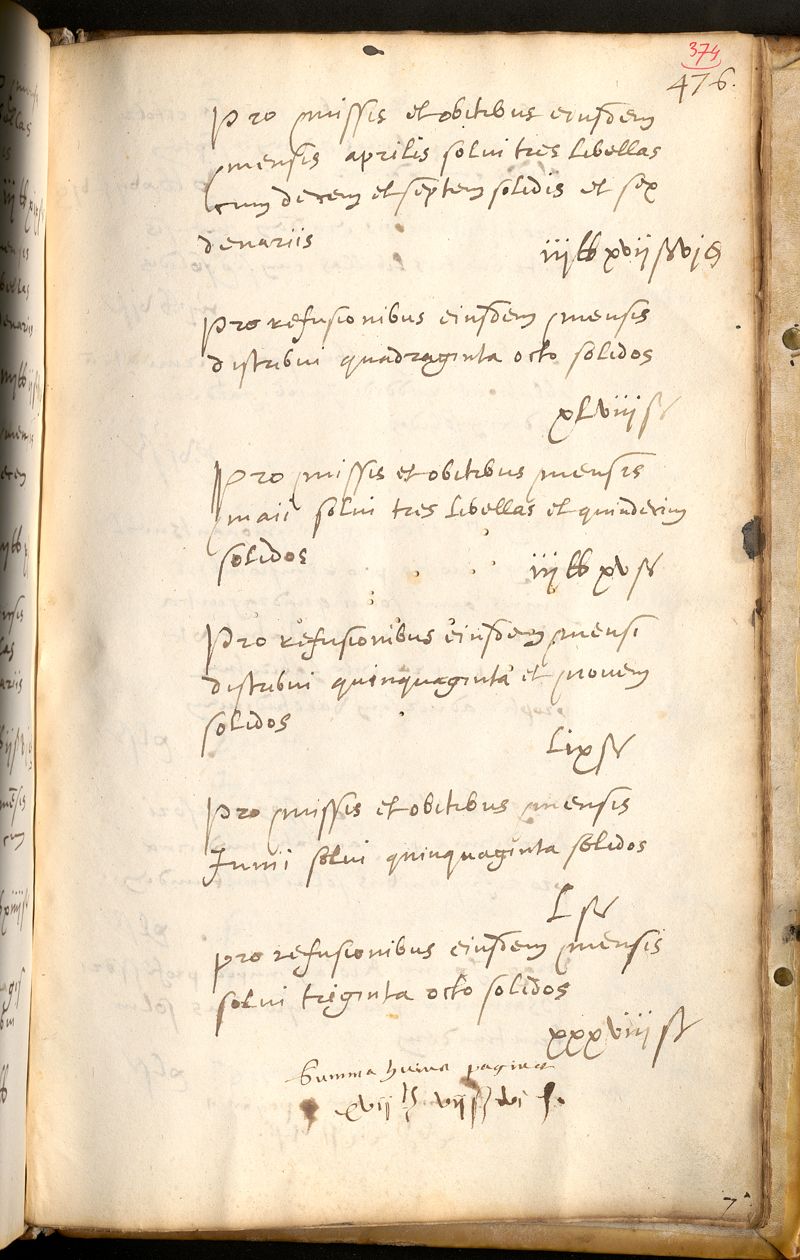 374
476.
Pro missis et obitibus eiusdem
mensis aprilis solui tres libellas
cum decem et septem solidis et sex
denariis
iij lb xvij s vj d
Pro refusionibus eiusdem mensis
distribui quadraginta octo solidos
xLviij s
Pro missis et obitibus mensis
maii solui tres libellas et quindecim
solidos
iij lb xv s
Pro refusionibus eiusdem mensi
distribui quinquaginta et novem
solidos
Lix s
Pro missis et obitibus mensis
Junii solui quinquaginta solidos
L s
pro refusionibus eiusdem mensis
solui triginta octo solidos
xxxviij s
Summa huius paginae
xvij lb vij s vi d.